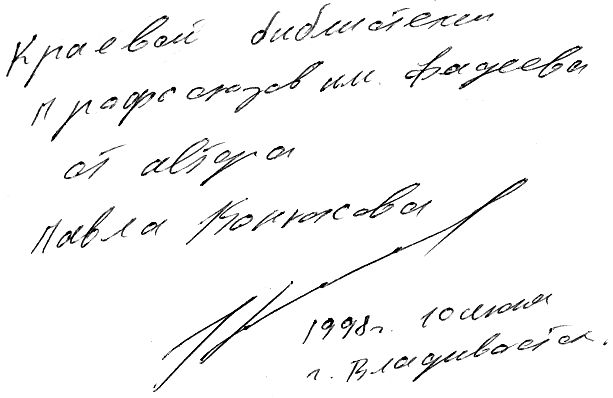 Краевой библиотеки
Профсоюзов им. Фадеева
от автора
Павла Конюхова
1998г. 10 июня
г. Владивосток.